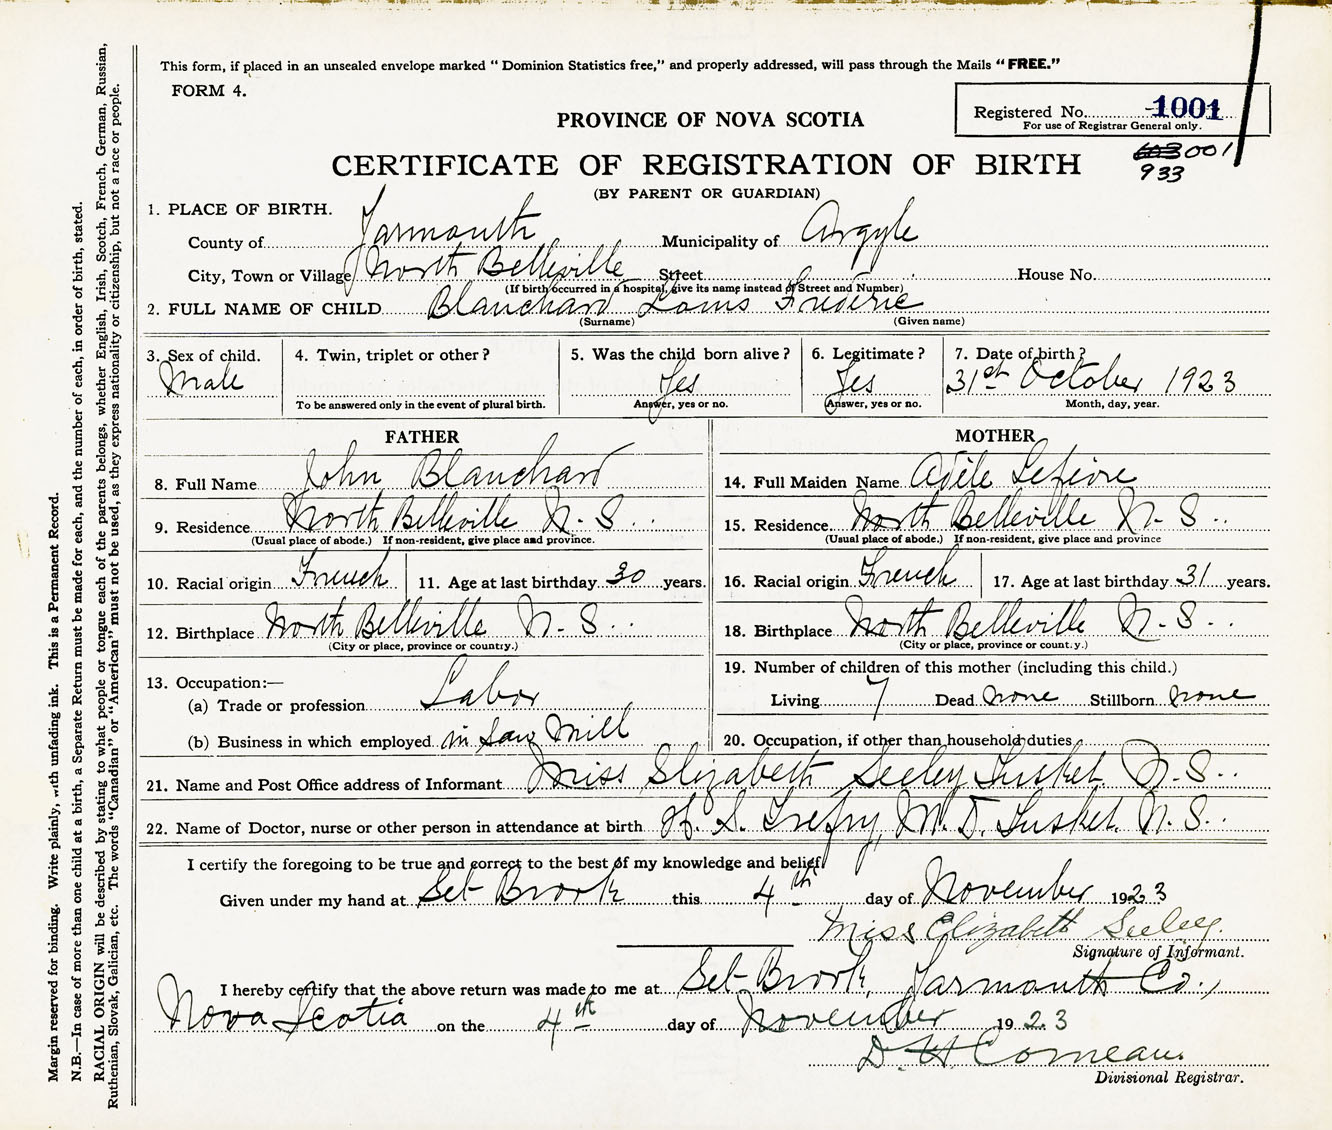 This form, if placed in an unsealed envelope marked “ Dominion Statistics free,” and properly addressed, will pass through the Mails “ FREE.”
FORM 4.
Registered No. 1001
For use of Registrar General only.
PROVINCE OF NOVA SCOTIA
CERTIFICATE OF REGISTRATION OF BIRTH
603 001
933
(BY PARENT OR GUARDIAN)
1. PLACE OF BIRTH.
County of Yarmouth Municipality of Argyle
City, Town or Village North Belleville Street House No.
(If birth occurred in a hospital, give its name instead of Street and Number)
2. FULL NAME OF CHILD Blanchard Louis Frédéric
(Surname) (Given name)
3. Sex of child. 4. Twin, triplet or other ? 5. Was the child born alive ? 6. Legitimate ? 7. Date of birth ?
Male Yes Yes 31st October 1923
To be answered only in the event of plural birth. Answer, yes or no. Answer, yes or no. Month, day, year.
FATHER MOTHER
8. Full Name John Blanchard 14. Full Maiden Name Adèle Lefèvre
9. Residence North Belleville N. S. 15. Residence North Belleville N. S.
(Usual place of abode.) If non-resident, give place and province. (Usual place of abode.) If non-resident, give place and province
10. Racial origin French 11. Age at last birthday 30 years. 16. Racial origin French 17. Age at last birthday 31 years.
12. Birthplace North Belleville N. S. 18. Birthplace North Belleville N. S.
(City or place, province or country.) (City or place, province or count.y.)
13. Occupation:— 19. Number of children of this mother (including this child.)
(a) Trade or profession Labor Living 7 Dead none Stillborn none
(b) Business in which employed in Saw Mill 20. Occupation, if other than household duties
21. Name and Post Office address of Informant Miss Elizabeth Seeley Tusket N. S.
22. Name of Doctor, nurse or other person in attendance at birth H. S. Trefry, M. D. Tusket N. S.
I certify the foregoing to be true and correct to the best of my knowledge and belief
Given under my hand at Sel-Brook this 4th day of November 1923
Miss Elizabeth Seeley.
Signature of Informant.
I hereby certify that the above return was made to me at Sel-Brook, Yarmouth Co.,
Nova Scotia on the 4th day of November 1923
D. H. Comeau.
Divisional Registrar.
Margin reserved for binding. Write plainly, with unfading ink. This is a Permanent Record.
N.B.—In case of more than one child at a birth, a Separate Return must be made for each, and the number of each, in order of birth, stated.
RACIAL ORIGIN will be described by stating to what people or tongue each of the parents belongs, whether English, Irish, Scotch, French, German, Russian,
Ruthenian, Slovak, Galician, etc. The words “Canadian” or “American” must not be used, as they express nationality or citizenship, but not a race or people.